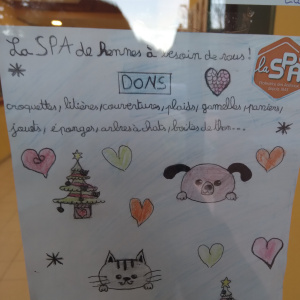 La SPA de Rennes à besoin de vous!
DONS
croquettes, litières, couvertures, plaids, gamelles, paniers,
jouets, éponges, arbres à chats, boites de thon...
la SPA